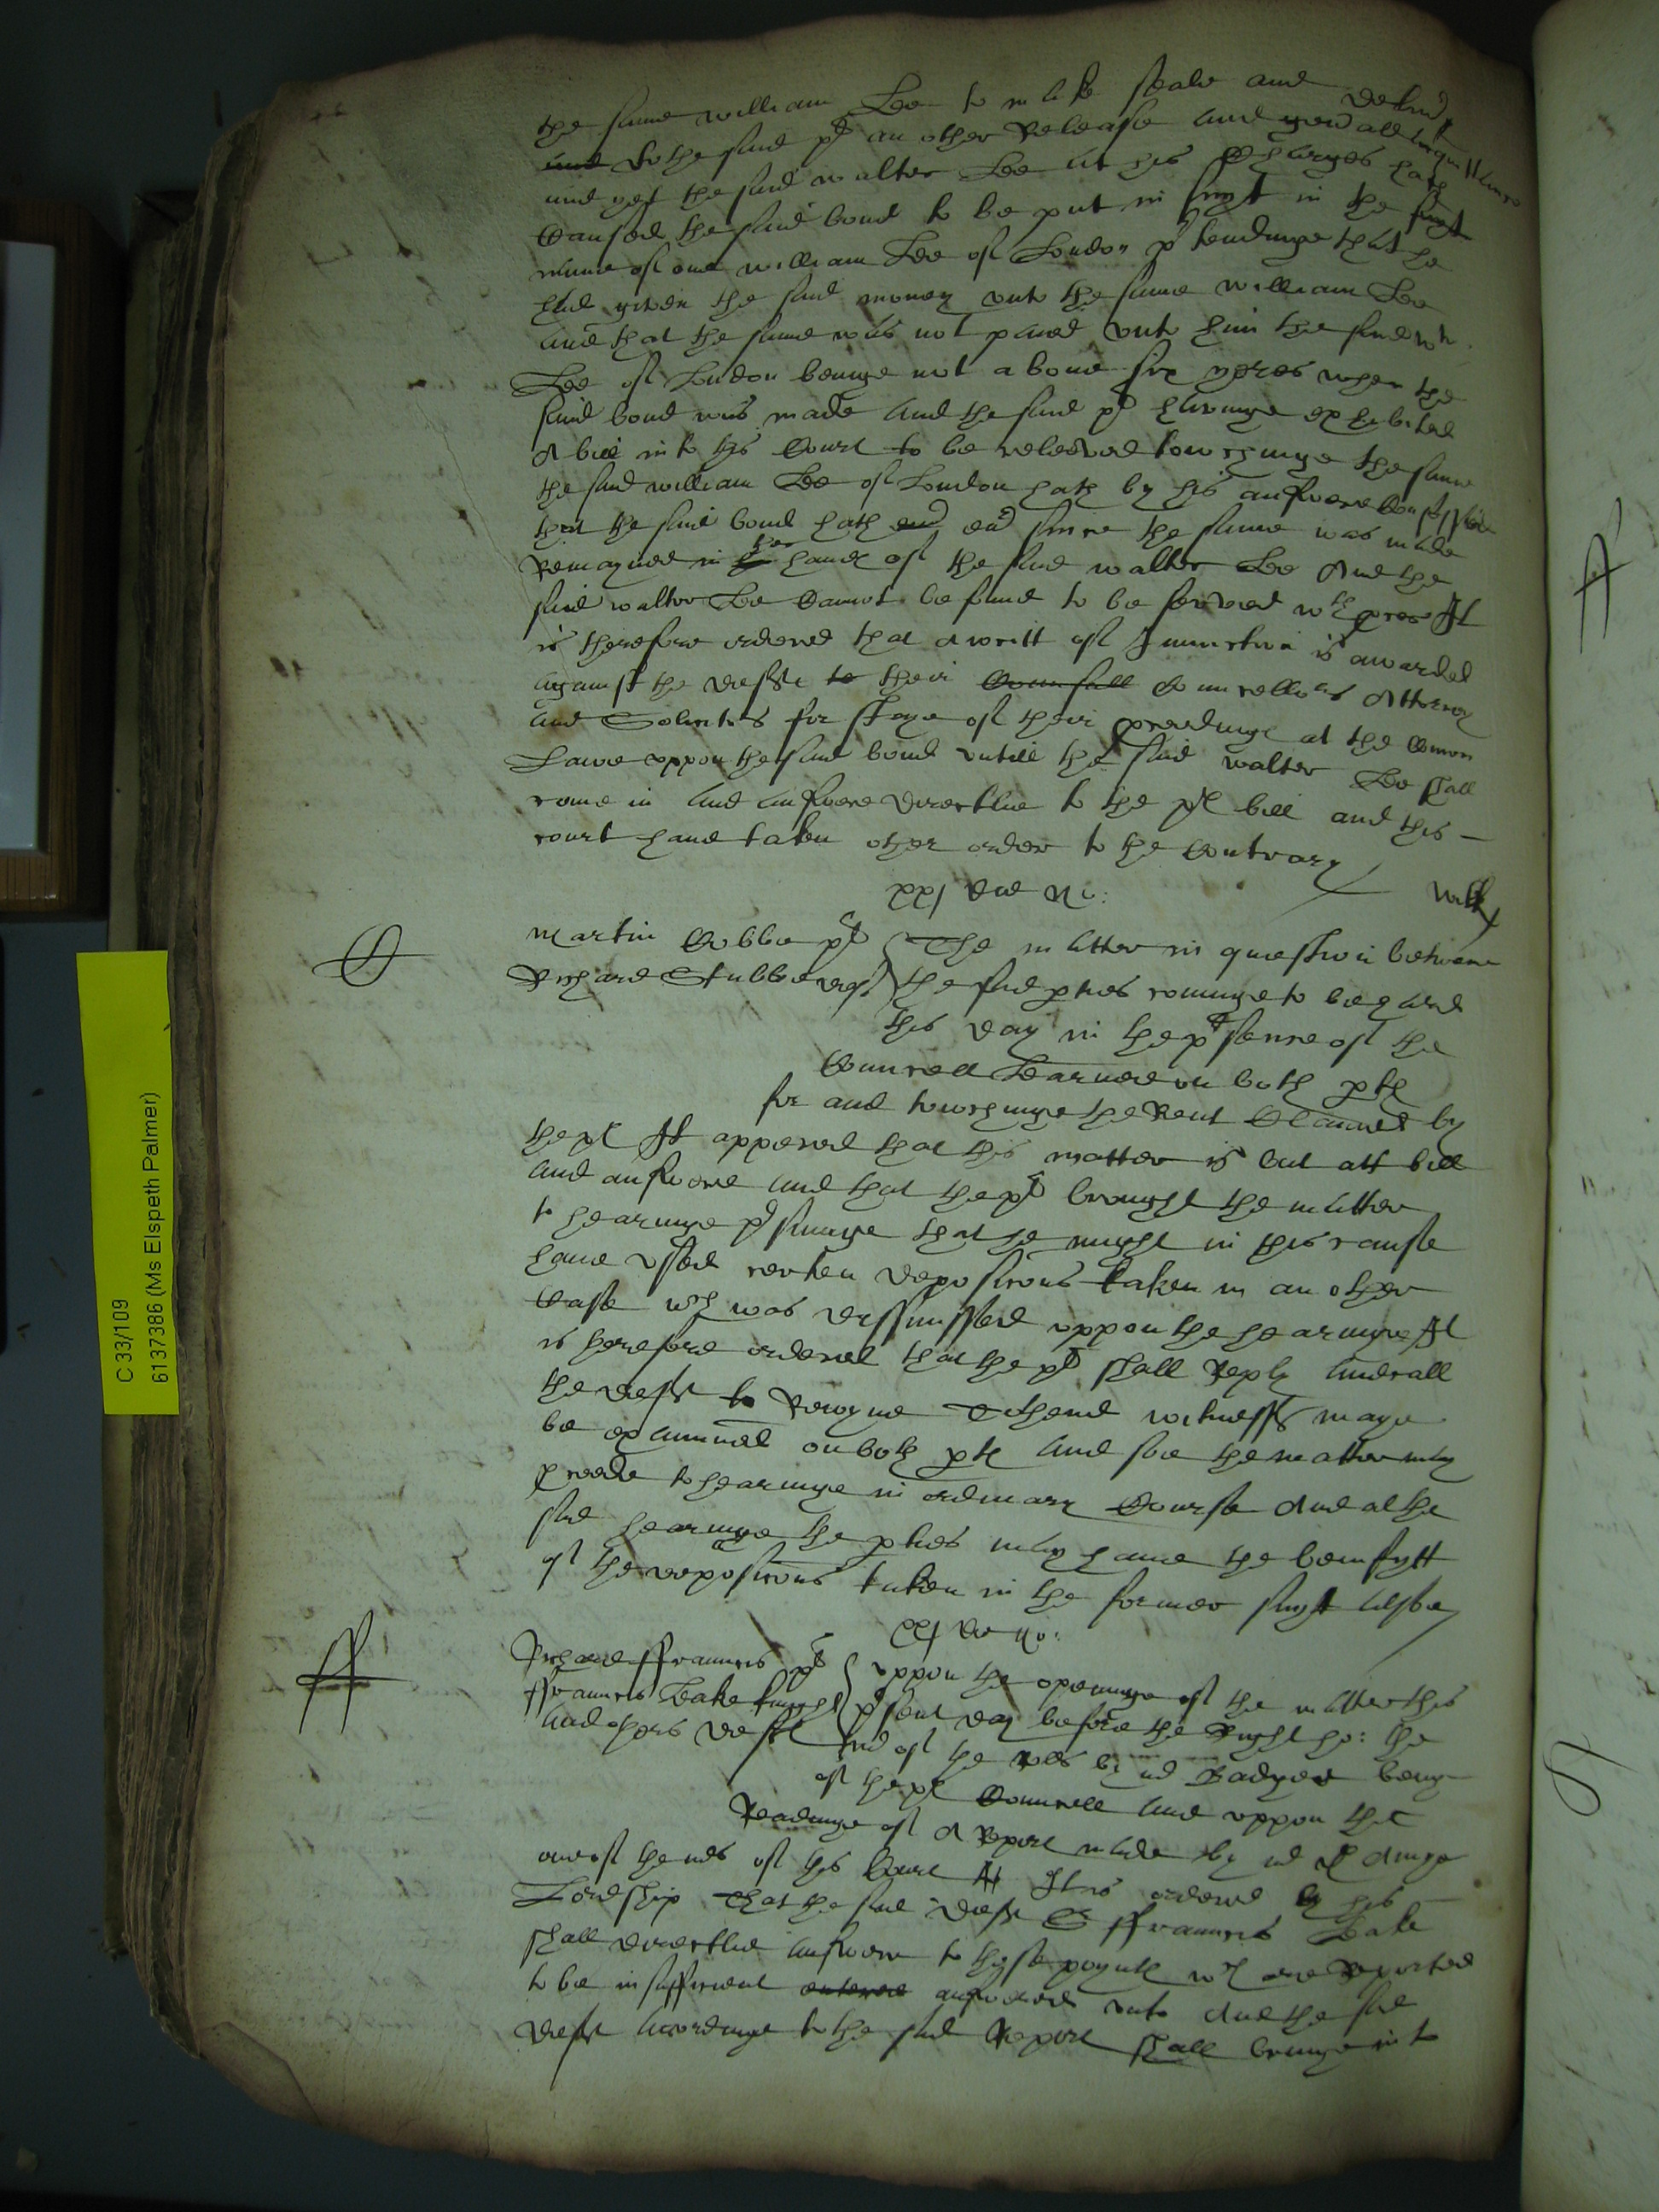 the same william Lee to make seale and deliu
and to the said pl an other Release and gen all acquittance
and yet the said walter Lee at his Charges hath
Caused the said bond to be put in suyt in the
name of one william Lee of London ptendinge that he
had given the said money vnto the same william Lee
and that the same was not paied vnto him the said wm
Lee of London beinge not aboue six yeres when the
said bond was made And the said pl havinge exhibited
A bill into this Court to be releeved towchinge the same
the said william Lee of London hath by his answere Confessed
that the said bond hath eu eu since the same was made
Remayned in the hand of the said walter Lee And the
said walter Lee Cannot be found to be served wth proces It
is therefore ordered that a writt of Iniunction is awarded
against the defte to their Counsell Councellors Attorney
and Solicitors for staye of their proceedinge at the Comon
Lawe vppon the said bond vntill the said walter Lee shall
come in and answere directlie to the pl bill and this
court haue taken other order to the Contrary
Martin Cobbe pl The matter in question betweene
Richard Stubbe deft the said pties cominge to be heard
this day in the psence of the
Councell Learned on both pte
for and towchinge the Rent Claimed by
the pl It appered that this matter is but att bill
and answere and that the pl brought the matter
to hearinge psuminge that he might in this cause
haue vsed certen deposicons taken in an other
Case wch was dissmissed vppon the hearinge It
is therefore ordered that the pl shall Reply and call
the defte to Reioyne witnesses maye
be examined on both pte and soe the matter may
proceede to hearinge in ordinary Course And at the
said hearinge the pties may haue the benifytt
of the deposicons taken in the former suyt alsoe
Richard ffraunces pl vppon the openinge of the matter this
ffraunces Leake knyght psent day before the Right ho: the
and others defte of the by mr Badger being
of the pl Councell and vppon the
Readinge of A Report made by mr
one of the mrs of this Court It is ordered by his
Lordship That the said deft Sr ffraunces Leake
shall directlie answere to those poynte wch are Reported
to be insufficient answered vnto And the said
deft accordinge to the said Report shall bringe into
C 33/109
6137386 (Ms Elspeth Palmer)